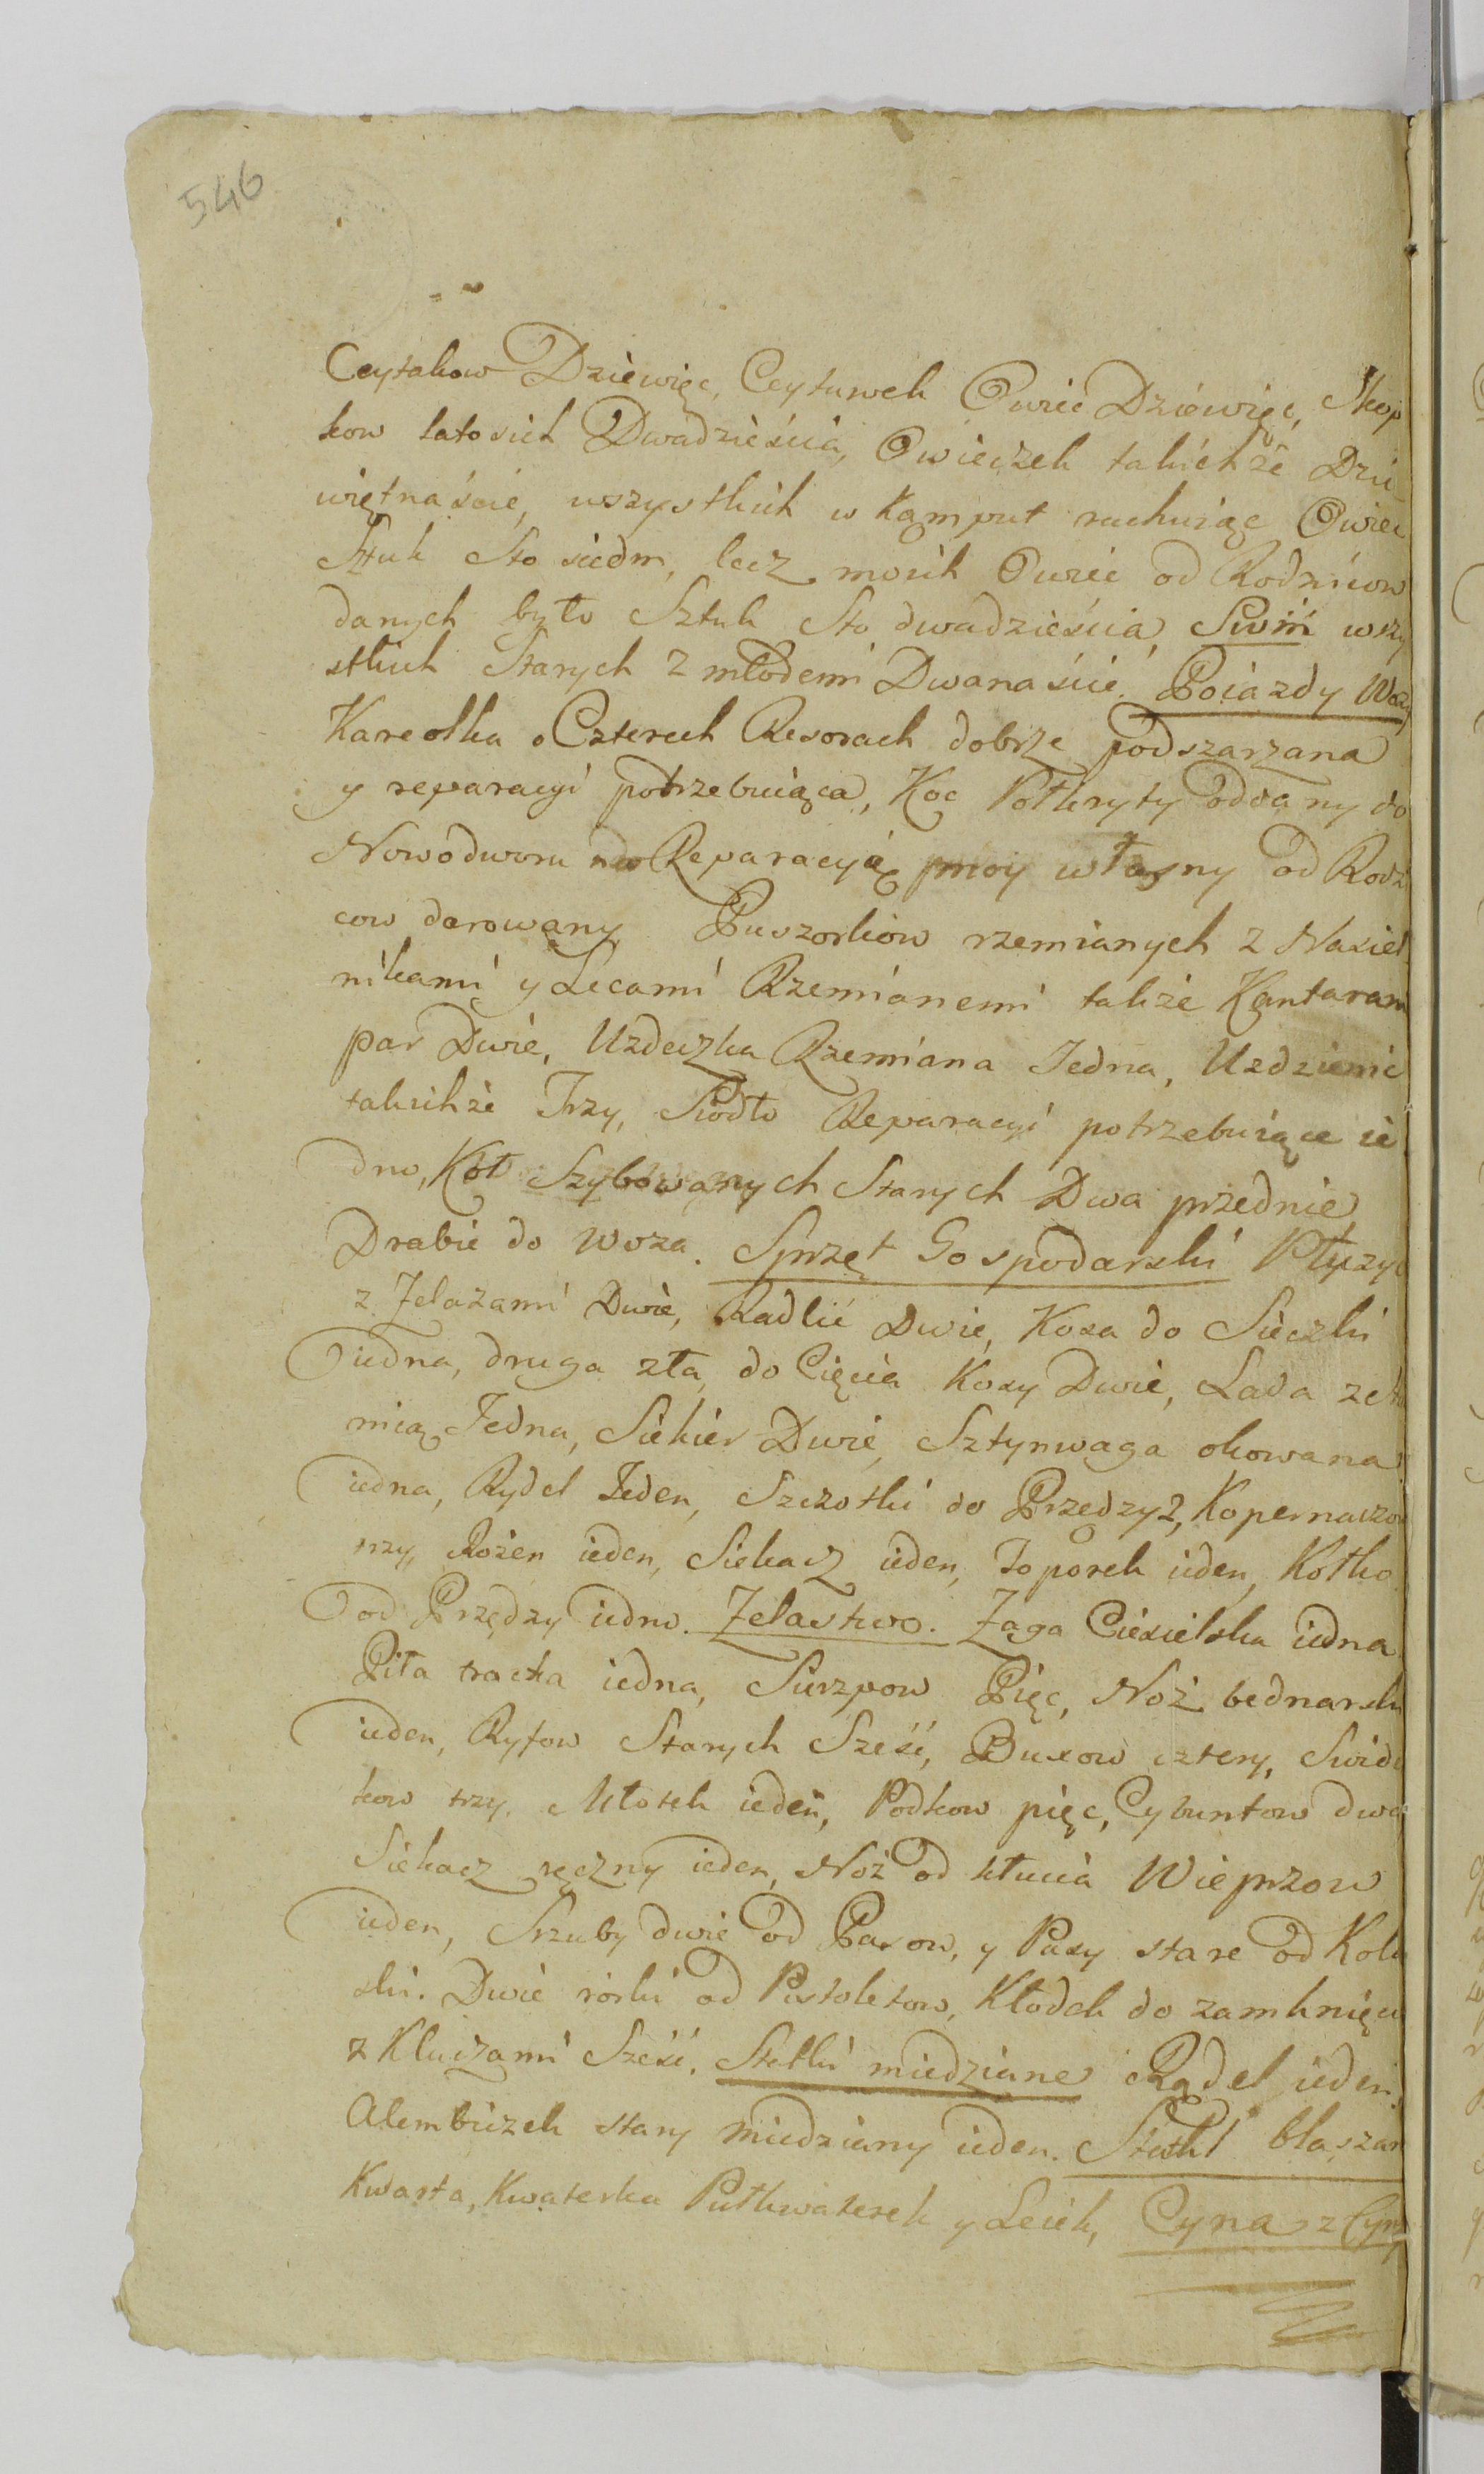 546
Ceytakow Dziewięc, Ceytuwek Owiec Dziewięc, Skop
kow latosich Dwadzieścia, Owieczek takichże Dzie
więtnaście, wszystkich w Kamput rachuiąc Owiec
Sztuk Sto siedm, lecz moich Owiec od Rodzicow
danych było Sztuk Sto dwadzieścia, Swiń wszy
stkich Starych z młodemi Dwanaście. Poiazdy Wozy
Kareolka o Czterech Resorach dobrze podszarzana
y reparacyi potrzebuiąca, Koc Połkryty oddany do
Nowodworu do Reparacyią moy własny od Rodzi
cow darowany Puszorkow rzemianych z Nasiel
nikami y Lecami Rzemianemi także Kantaram
par Dwie, Uzdeczka Rzemiana Jedna, Uzdzienic
takichże Trzy, Siodło Reparacyi potrzebuiące ie
dno, Koł Szybowanych Starych Dwa przednie
Drabie do woza. Sprzęt Gospodarski Płyzyc
z Zelazami Dwie, Radlic Dwie, Kosa do Sieczki
iedna, druga zła, do Cięcia Kosy Dwie, Lada
mią Jedna, Siekier Dwie, Sztynwaga okowana
iedna, Rydel Jeden, Szczotki do Przedzy 2, Kopernaczow
rzy, Rożen ieden, Siekacz ieden, Toporek ieden, Kołko
od Przędzy iedno. Zelastwo. Zaga Ciesielska iedna
Piła tracka iedna, Sierzpow Pięc, Noż bednarski
ieden, Ryfow Starych Sześć, Buxow cztery, Swidr
kow trzy, Młotek ieden, Podkow pięc, Cybuntow dwa
Siekacz ręczny ieden, Noż od kłucia Wieprzow
ieden, Szruby dwie od Pasow, y Pasy stare od Kola
ski. Dwie rórki od Pistoletow, Kłodek do zamknięcia
z Kluczami Sześć. Statki miedziane Rądel ieden,
Alembiczek stary miedziany ieden. Statki blaszan
Kwarta, Kwaterka Pułkwaterek y Leiek, Cyna z Cyny